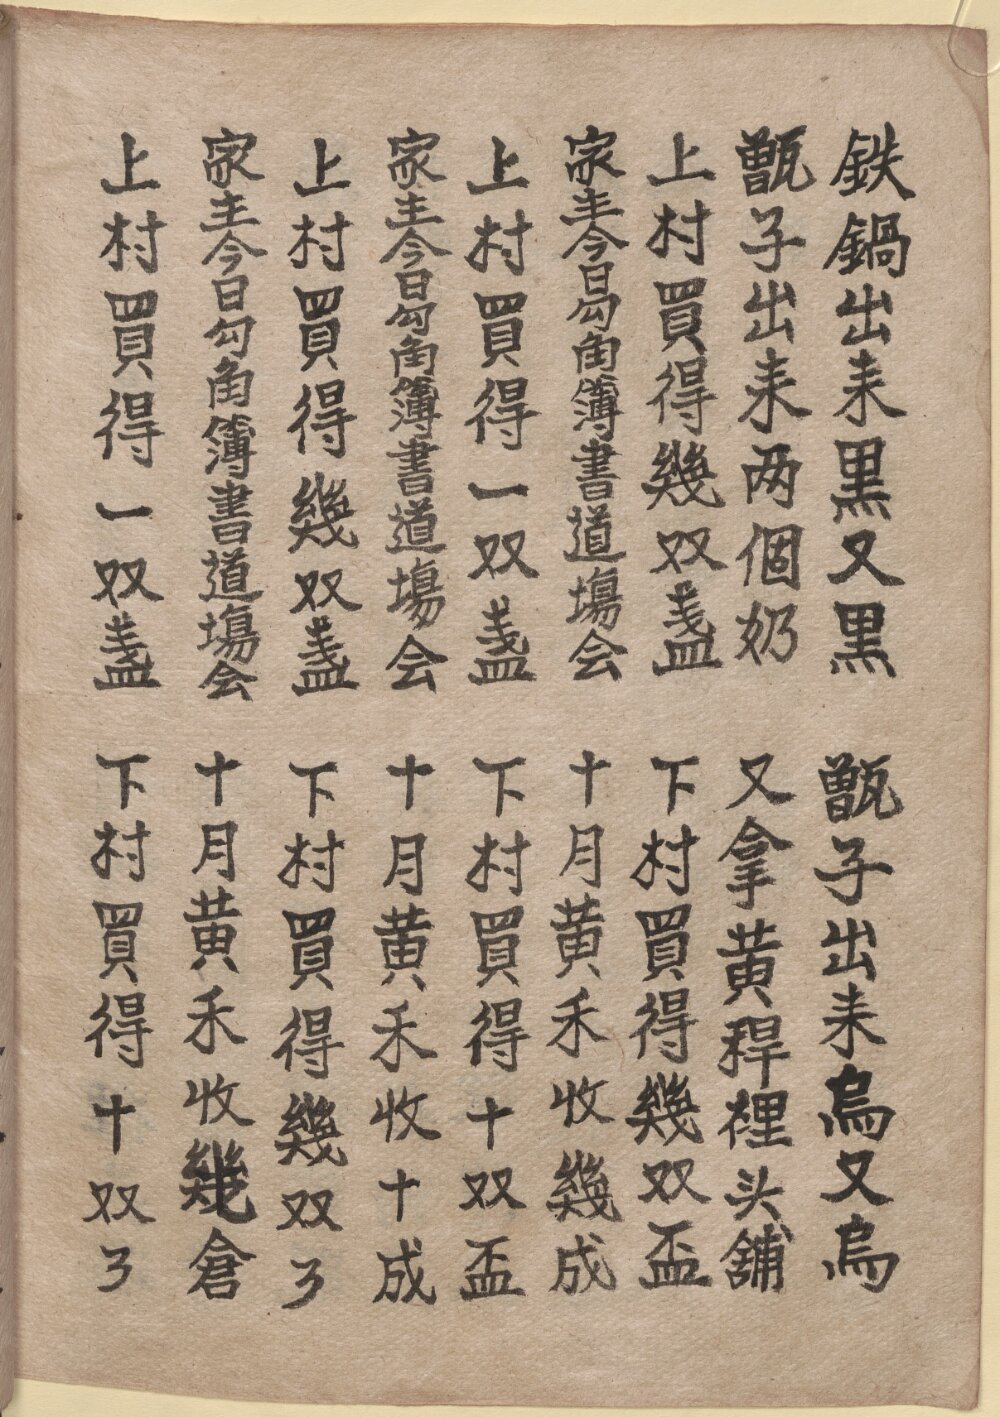 鉄鍋出来黒又黒　甑子出来烏又烏
甑子出来两個奶　又拿黄稈裡头舖
上村買得幾双盞　下村買得幾双盃
家主今日勾角簿書道塲会　十月黄禾收幾成
上村買得一双盞　下村買得十双盃
家主今日勾角簿書道塲会　十月黄禾收十成
上村買得幾双盞　下村買得幾双了
家主今日勾角簿書道塲会　十月黄禾收幾倉
上村買得一双盞　下村買得十双了